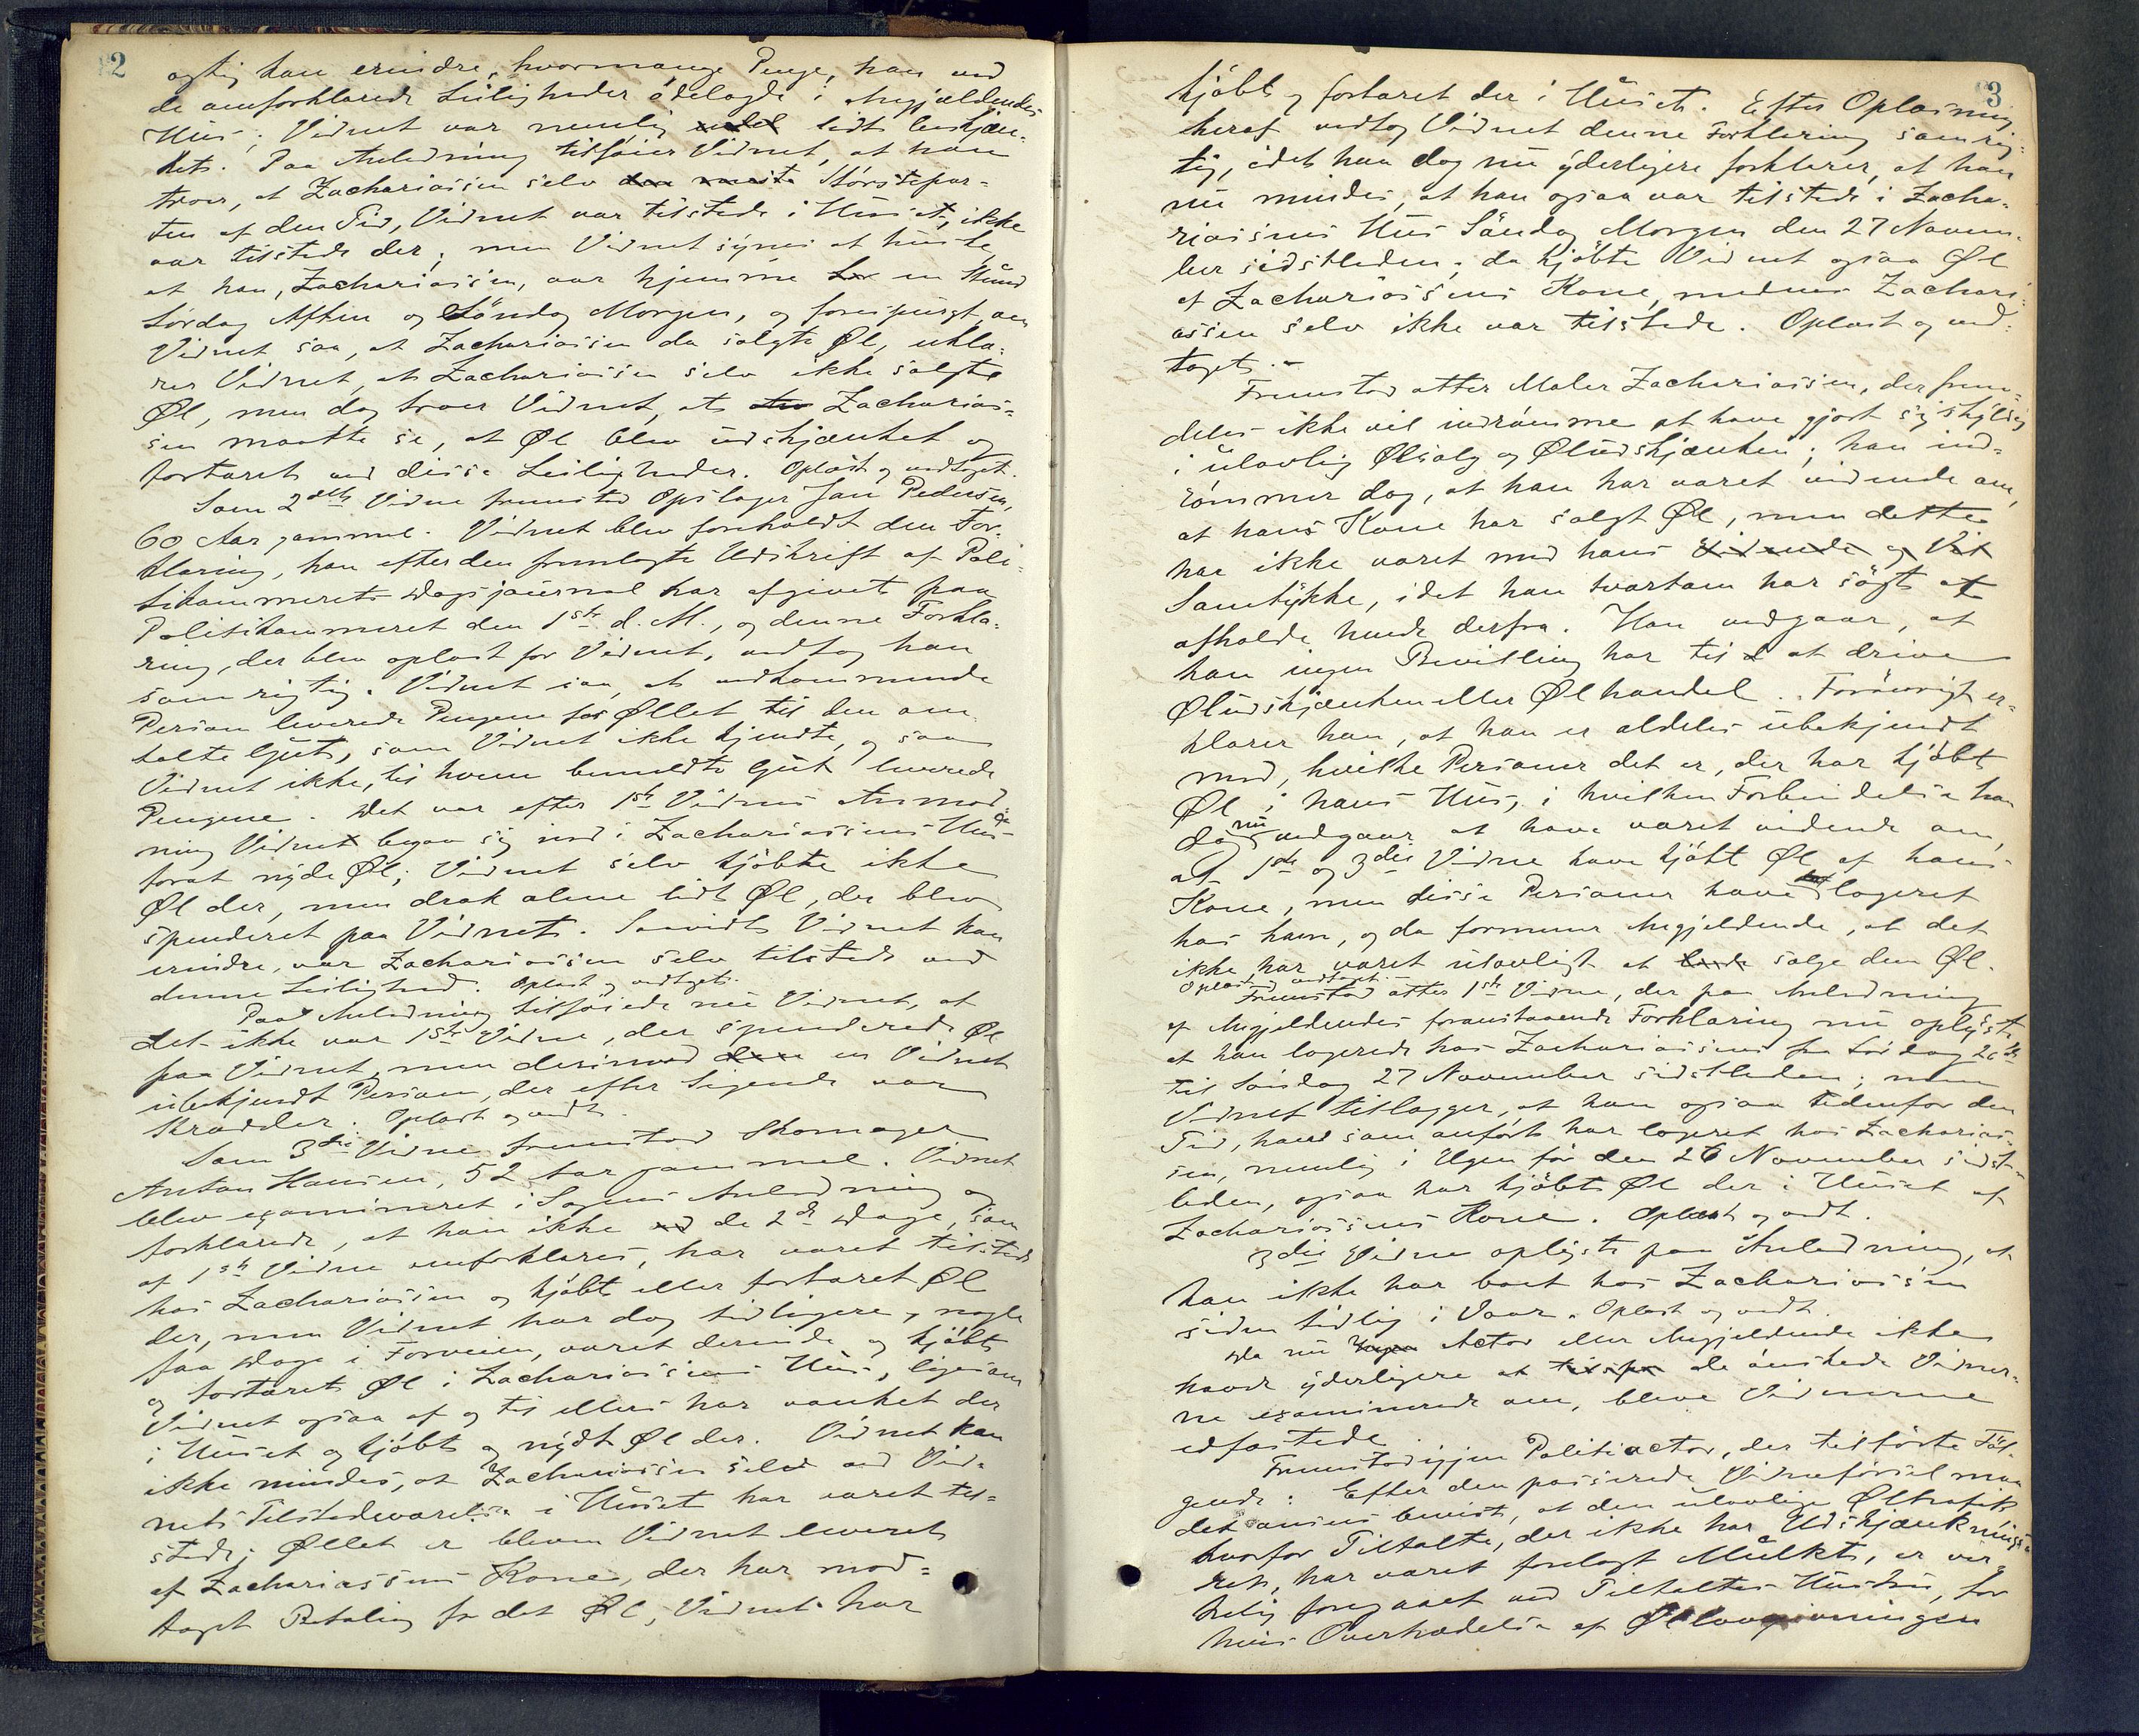 2
agtig kan erindre, hvormange Penge, han ved
de omforklarede Leiligheder ödelagde i Angjældendes
Hus; Vidnet var nemlig lidt beskjæn-
ket. Paa Anledning tilföier Vidnet, at han
troer, at Zachariassen selv den meste Störstepar-
ten af den Tid, Vidnet var tilstede i Huset, ikke
var tilstede der, men Vidnet synes at huske,
at han, Zachariassen, var hjemme en Stund
Lördag Aften og Söndag Morgen, og forespurgt, om
Vidnet saa, at Zachariassen da solgte Øl, erklæ-
rer Vidnet, at Zachariassen selv ikke solgte
Øl, men dog troer Vidnet, at Zacharias-
sen maatte se, at Øl blev udskjænket og
fortæret ved disse Leiligheder. Oplæst og vedtaget.
Som 2det Vidne fremstod Opslager Jan Pedersen,
60 Aar gammel. Vidnet blev foreholdt den For-
klaring, han efter den fremlagte Udskrift af Poli-
tikammerets Dagsjournal har afgivet paa
Politikammeret den 1ste d. M., og denne Forkla-
ring, der blev oplæst for Vidnet, vedtog han
som rigtig. Vidnet saa, at vedkommende
Person leverede Pengene for Øllet til den om-
talte Gut, som Vidnet ikke kjendte, og saa
Vidnet ikke, til hvem bemeldte Gut leverede
Pengene. Det var efter 1ste Vidnes Anmod-
ning Vidnet begav sig ind i Zachariassens Hus
forat nyde Øl; Vidnet selv kjöbte ikke
Øl der, men drak alene lidt Øl, der blev
spenderet paa Vidnet. Saavidt Vidnet kan
erindre, var Zachariassen selv tilstede ved
denne Leilighed. Oplæst og vedtaget.
Paa Anledning tilföiede nu Vidnet, at
det ikke var 1ste Vidne, der spenderede Øl
paa Vidnet, men derimod en Vidnet
ubekjendt Person, der efter Sigende var
Skrædder. Oplæst og vedt.
Som 3die Vidne fremstod Skomager
Anton Hansen, 52 Aar gammel. Vidnet
blev examineret i Sagens Anledning og
forklarede, at han ikke de 2de Dage, som
af 1ste Vidne omforklares, har været tilstede
hos Zachariassen og kjöbt eller fortæret Øl
der, men Vidnet har dog tidligere, nogle
faa Dage i Forveien, været derinde og kjöbt
og fortæret Øl i Zachariassens Hus, ligesom
Vidnet ogsaa af og til ellers har vanket der
i Huset og kjöbt og nydt Øl der. Vidnet kan
ikke mindes, at Zachariassen selv ved Vid-
nets Tilstedeværelse i Huset har været til-
stede; Øllet er bleven Vidnet leveret
af Zachariassens Kone, der har mod-
taget Betaling for det Øl, Vidnet har
3
kjöbt og fortæret der i Huset. Efter Oplæsning
heraf vedtog Vidnet denne Forklaring som rig-
tig, idet han dog nu yderligere forklarer, at han
nu mindes, at han ogsaa var tilstede i Zacha-
riassens Hus Söndag Morgen den 27 Novem-
ber sidstleden; da kjöbte Vidnet ogsaa Øl
af Zachariassens Kone, medens Zachari-
assen selv ikke var tilstede. Oplæst og ved-
taget.-
Fremstod atter Maler Zachariassen, der frem-
deles ikke vil indrömme at have gjort sig skyldig
i ulovlig Ølsalg og Øludskjænken; han ind-
römmer dog, at han har været vidende om,
at hans Kone har solgt Øl, men dette
har ikke været med hans Vidende og Vil
Samtykke, idet han tvertom har sögt at
afholde hende derfra. Han vedgaar, at
han ingen Bevilling har til at drive
Øludskjænken eller Ølhandel. Forövrigt er-
klærer han, at han er aldeles ubekjendt
med, hvilke Personer det er, der har kjöbt
Øl i hans Hus, i hvilken Forbindelse han
dog nu vedgaar at have været vidende om,
at 1ste og 3die Vidne have kjöbt Øl af hans
Kone, men disse Personer have logeret
hos ham, og da formener Angjeldende, at det
ikke har været ulovligt at sælge dem Øl.
Oplæst vedtaget.-
Fremstod atter 1ste Vidne, der paa Anledning
af Angjeldendes foranstaaende Forklaring nu oplyste,
at han logerede hos Zachariassens fra Lördag 26de
til Söndag 27 November sidstleden; men
Vidnet tillægger, at han ogsaa udenfor den
Tid, han som anfört har logeret hos Zacharias-
sen, nemlig i Ugen för den 26 November sidst-
leden, ogsaa har kjöbt Øl der i Huset af
Zachariassens Kone. Oplæst og vedt.
3die Vidne oplyste paa Anledning, at
han ikke har boet hos Zachariassen
siden tidlig i Vaar. Oplæst og vedt.
Da nu Actor eller Angjeldende ikke
havde yderligere at tilspö de önskede Vidner-
ne examinerede om, bleve Vidnerne
edfæstede.
Fremstod igjen Politiactor, der tilförte Föl-
gende: Efter den passerede Vidneförsel maa
det ansees bevist, at den ulovlige Øltrafik
hvorfor Tiltalte, der ikke har Udskjænknings-
ret, har været forelagt Mulkt, er vir-
kelig foregaaet ved Tiltaltes Hustru, for
hvis Overtrædelse af Øllovgivningen